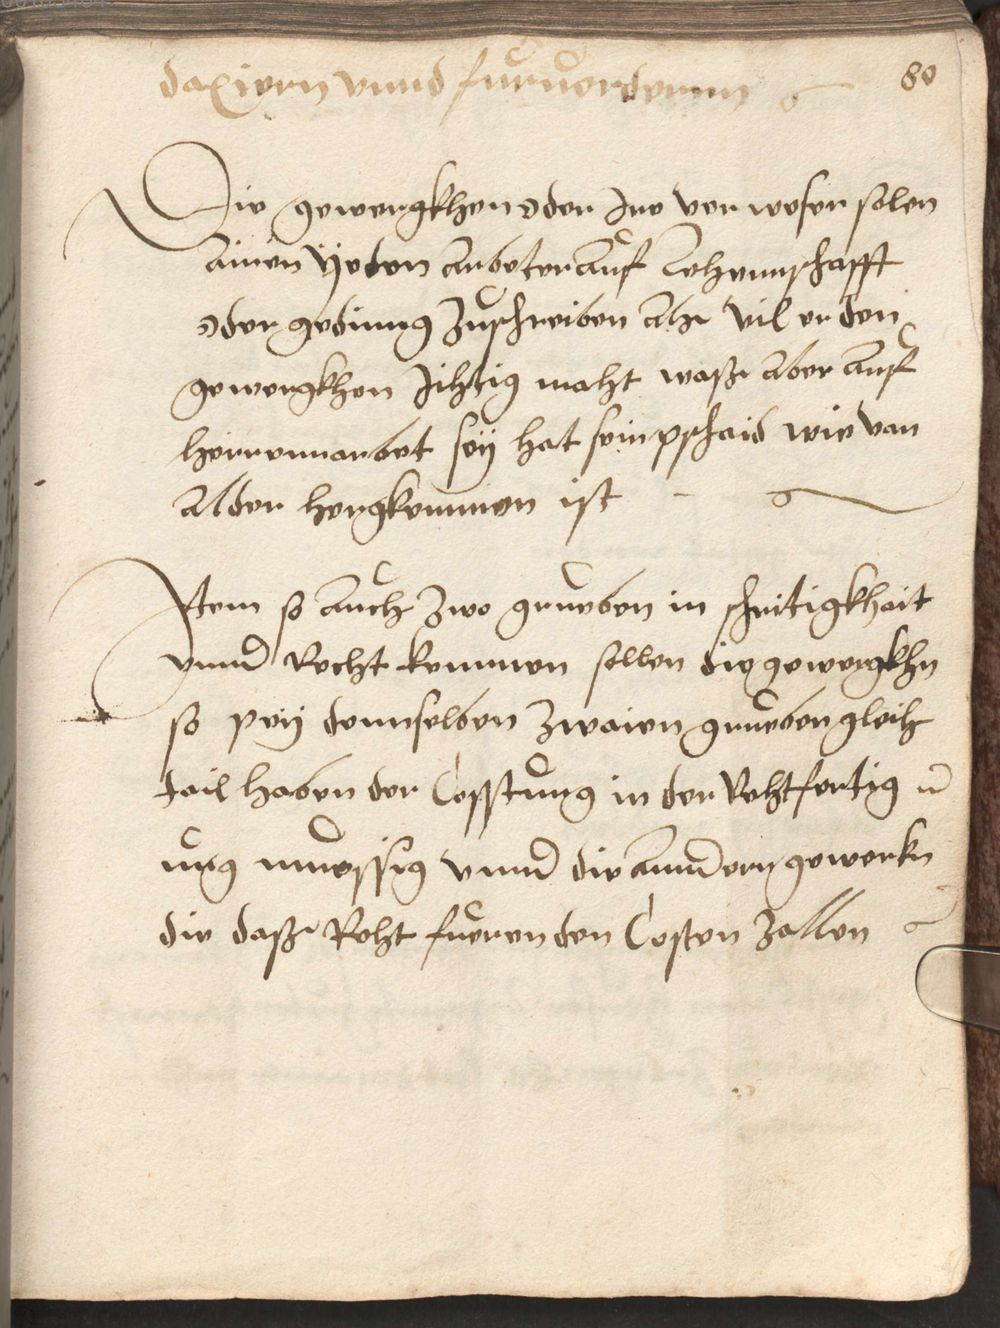 80
daxiern vnnd furuordernn
Die gewergkhen oder Ire verweser solen
ainen yeden arbeter auf Lehennschafft
oder gedinng zuschreiben alß vil er den
gewergkhen zihtig maht waß aber auf
herrennarbet seÿ hat sein pschaid wie van
alder hergkemmen ist
Item so auch zwo grueben in streitigkhait
vnnd Recht kemmen sollen die gewergkhn
so peÿ dennselben zwaien grueben gleich
tail haben der Cosstung in der Rehtfertig
ung muessig vnnd die anndern gewerkn
die daß Reht fueren den Costen zallen